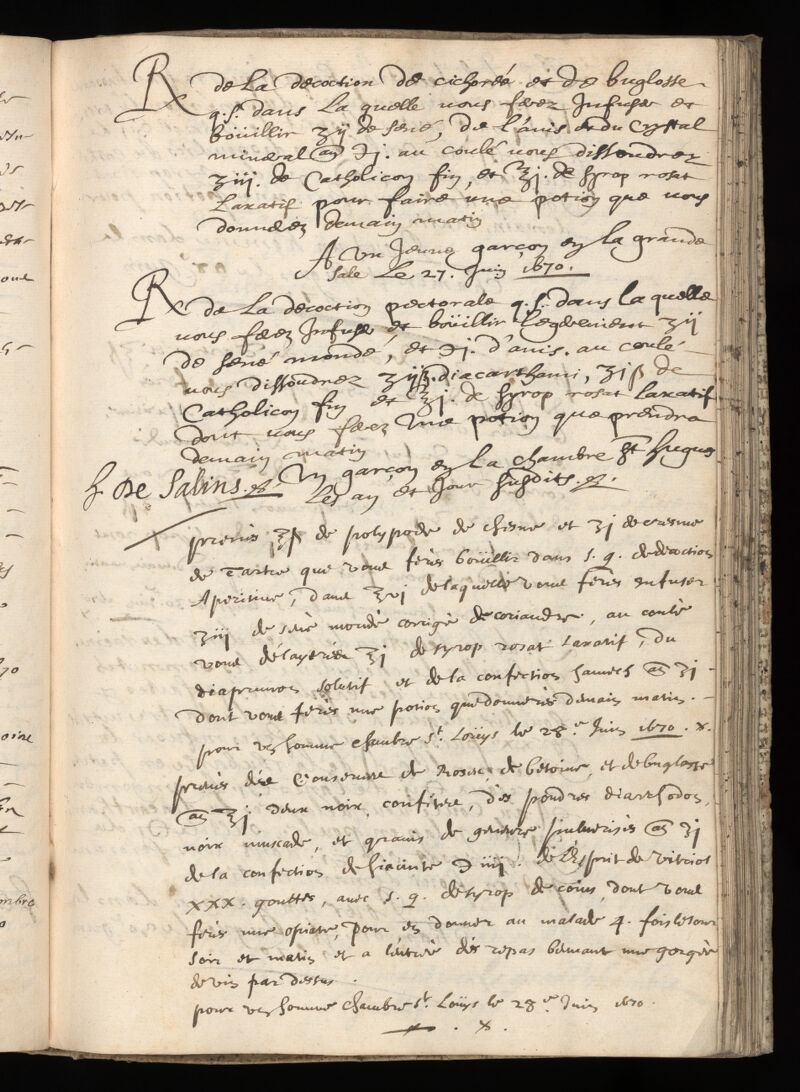 ℞ de La decoction de cichoreé et de buglosse
q. s. dans La quelle vous ferez Infuser et
boüillir ʒij de sené, de L'anis et du Crystal
mineral añ ℈j. au coulé vous dissoudrez
ʒiij. de Catholicon fin, et ℥j. de syrop rosat
Laxatif pour faire une potion que vous
donnerez demain matin
A un Jeune garçon en la grande
sale Le 27. Juin 1670.
℞ de La decoction pectorale q. s. dans la quelle
vous ferez Infuser et boüillir Legerement ʒij
de sené mondé, et ℈j. d'anis. au coulé
vous dissoudrez ʒijß. diacarthami, ʒiß de
Catholicon fin et ℥j. de syrop rosat Laxatif
dont vous ferez une potion que prendra
demain matin
h De Salins. Un garçon en La chambre St hugues
Les an et Jour susdits.
prenes ℥ß de polypode de chesne et ʒj de cresme
de Tartre que vous ferès boüillir dans s. q. de decoction
Aperitive, dans ℥vj de laquelle vous ferès enfuser
ʒiij de senè mondè corrigè de coriandre, au coulè
vous délayerès ℥j de syrop rosat Laxatif, du
diaprunon solutif et de la confection hamech añ ʒj
dont vous ferès une potion que donnerès demain matin.
pour un homme chambre St. Loüys le 28e Juin 1670. x.
prenès dès Conserves de Roses, de betoine, et de buglosse
añ ℥j deux noix confitere, dès poudres diarrhodon,
noix muscade, et grains de genevre pulverisès añ ʒj
de la confection de hiacinte ℈iiij. de L'esprit de vitriol
xxx. gouttes, avec s. q. de syrop de coins, dont vous
ferès une opiate, pour en donner au malade 4. fois le Jour
soir et matin et a l'entrèe dès repas beuvant une gorgèe
de vin par dessus.
pour un homme chambre St. Loüys le 28e Juin 1670.
x.